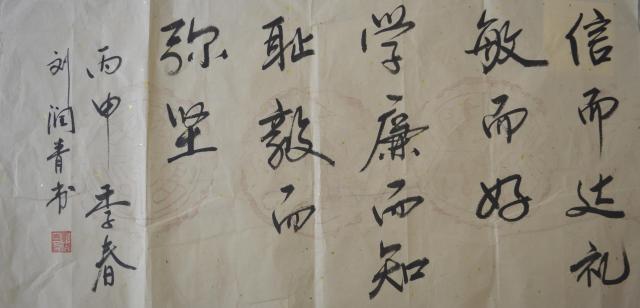 信而达礼
敏而好
学廉而知
耻毅而
弥坚
丙申季春
刘润青书